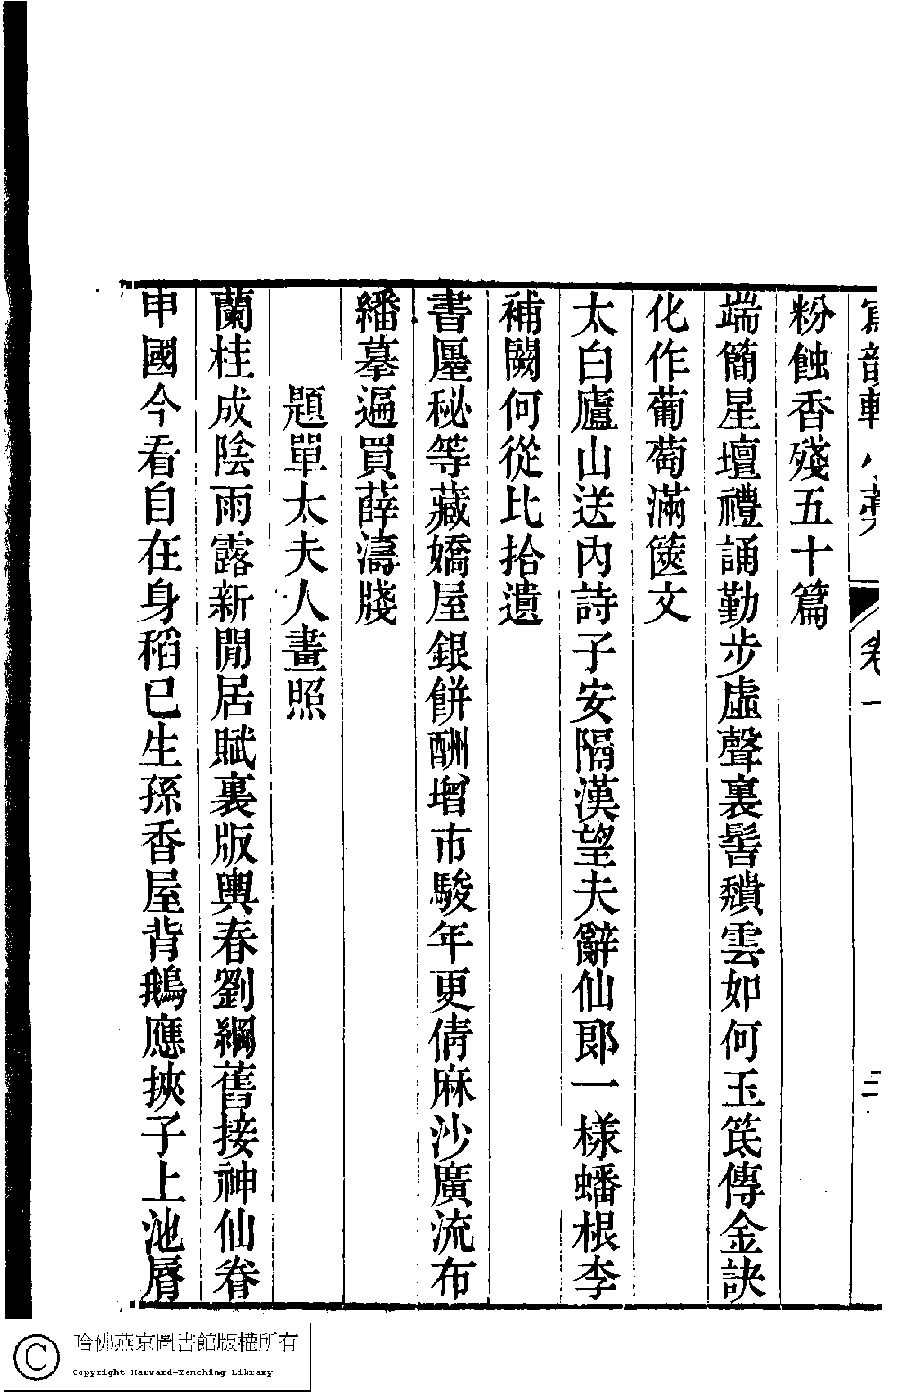 寫韵軒小藁 卷一 二
粉蝕香殘五十篇
端簡星壇禮誦勤步虛聲裏髻鬟雲如何玉笢傳金訣
化作葡萄滿篋文
太白廬山送內詩子安隔漢望夫辭仙郎一樣蟠根李
補闕何從比拾遺
書廛秘等藏嬌屋銀餅酬增市駿年更倩麻沙廣流布
繙摹遍買薛濤牋
題單太夫人畫照
蘭桂成陰雨露新閒居賦裏版輿春劉綱舊接神仙眷
申國今看自在身稻已生孫香屋背鵝應挾子上池脣
哈佛燕京圖書館版權所有
Copyright Harvard-Yenching Library